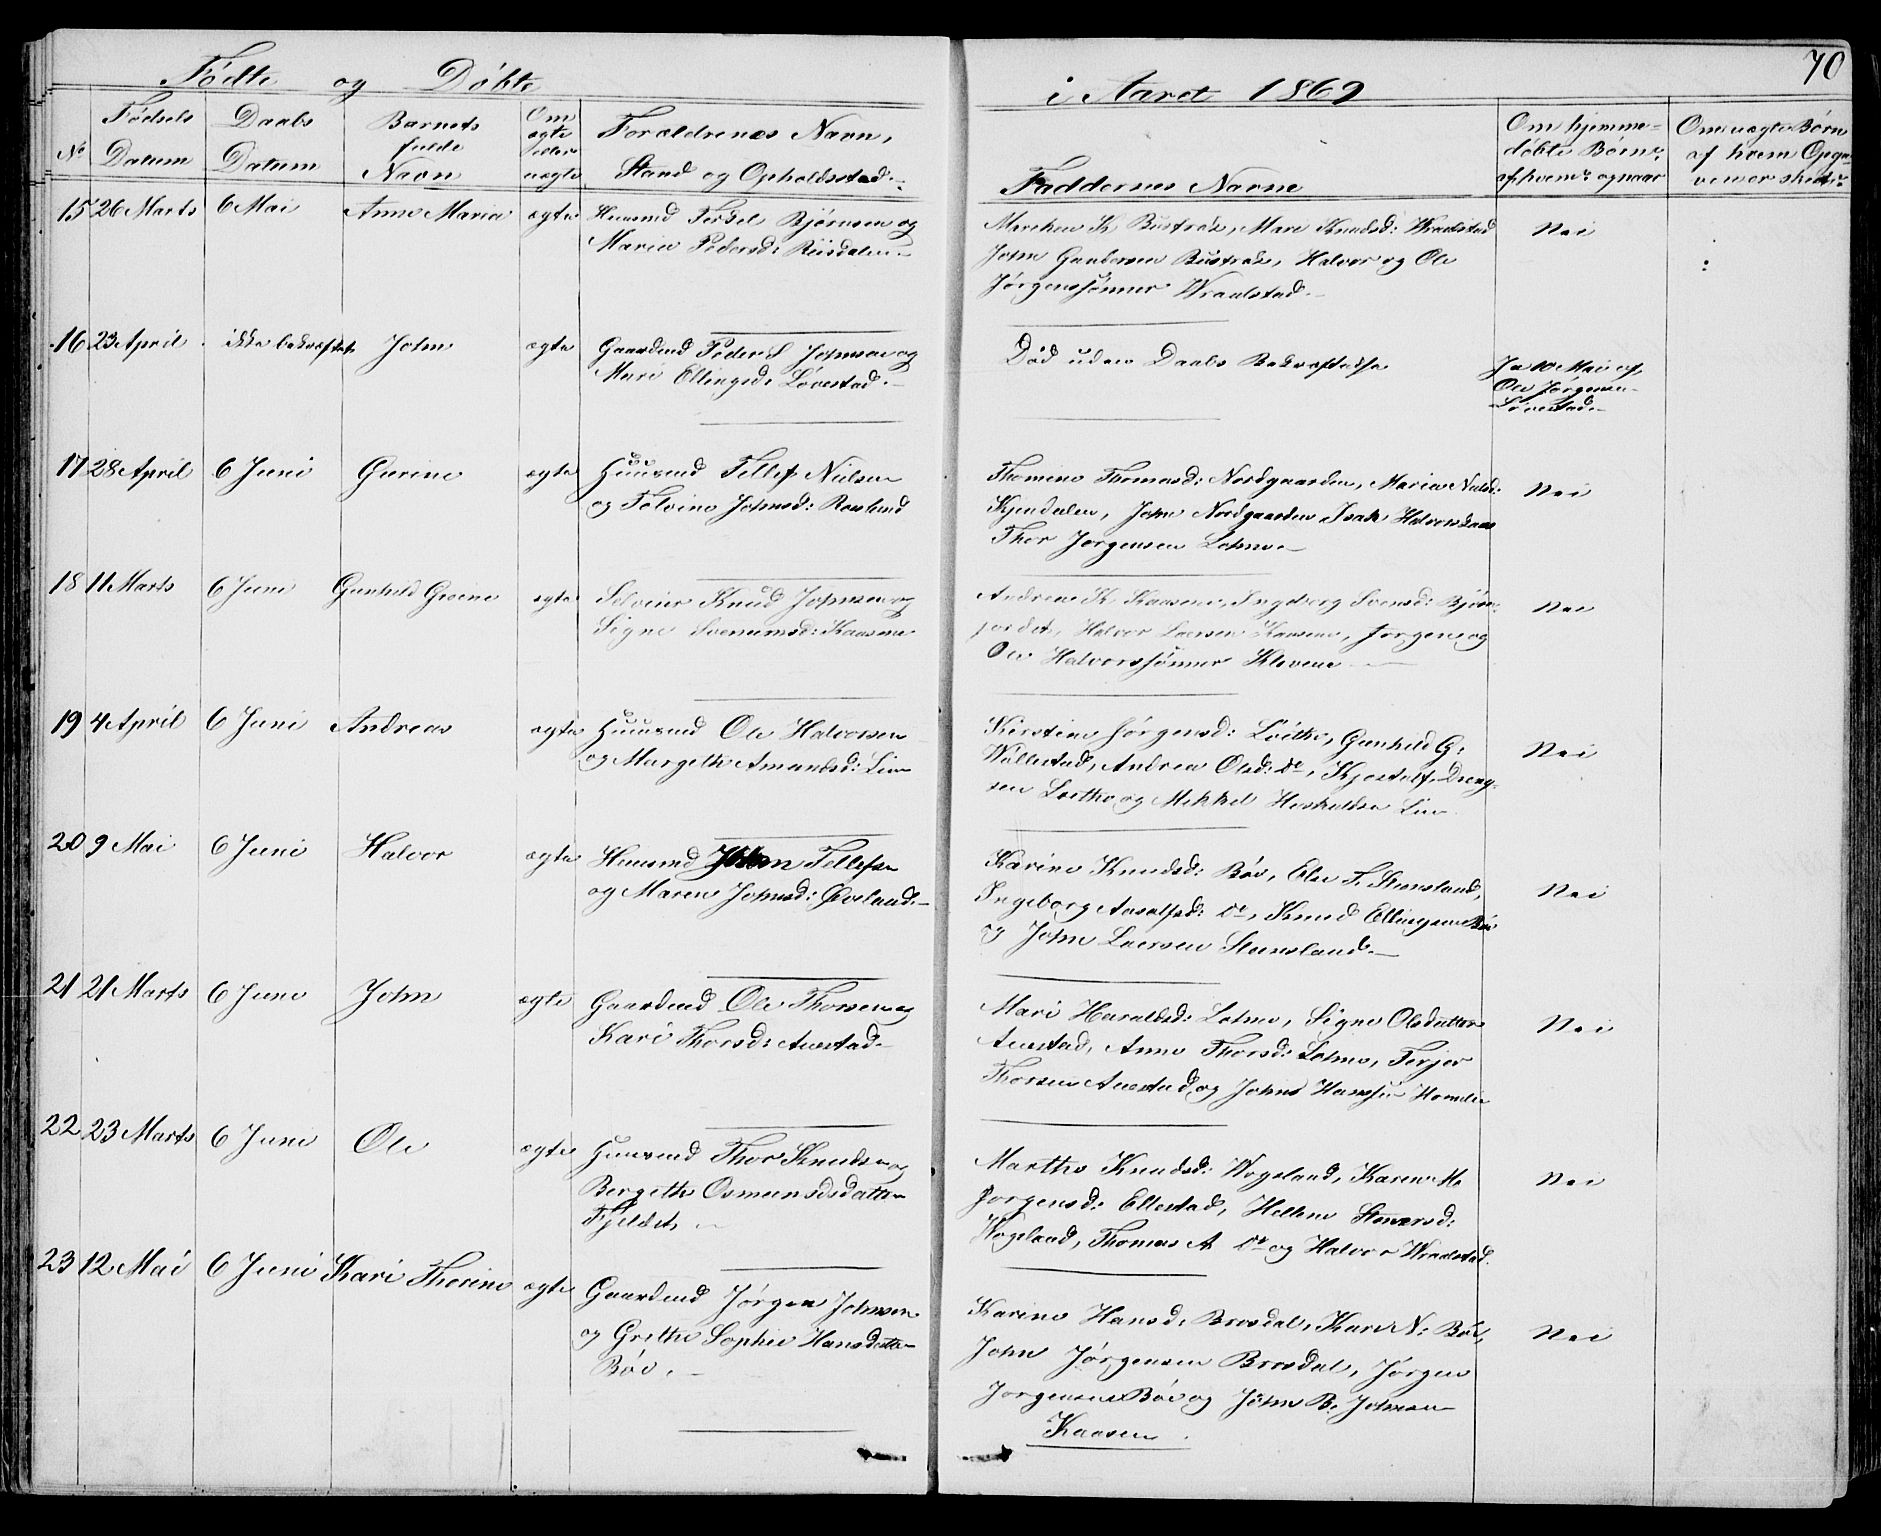 70
Fødte og Døbte i Aaret 1869
No
Fødsels Datum
Daabs Datum
Barnets fulde Navn
Om ægte eller uægte
Forældrenes Navn, Stand og Opholdssted.
Faddernes Navne
Om hjemmedøbte Børn, af hvem og naar
Om uægte Børn af hvem Opga
15 26 Marts 6 Mai Anne Maria ægte Huusmd Terkel Bjørnsen og
Maria Pedersd: Riisdalen
Mari Knudsd: Wraalstad
John Gundersen Bustrak, Halvor og Ole
Jørgenssønner Wraalstad.
Nei
16 23 April ikke bekræftet John ægte Gaardmd Peder S Johnsen og
Mari Ellingsd: Løvestad.
Død uden Daabs Bekræftelse
Ja 10 Mai af
Ole Jørgensen
Løvestad.
17 28 April 6 Juni Gurine ægte Huusmd Tellef Nielsen
og Tolvine Johnsd: Roseland
Thomine Thomasd: Nordgaarden, Maria Nielsd:
Kjendalen, John Nordgaarden Isak
Thor Jørgensen Lohne
Nei
18 11 Marts 6 Juni Gunhild ægte Selveier Knud Johnsen og
Signe Kaasene
Andrene K Kaasene, Ingeborg Svensd: Bjørn
jordet, Halvor Larsen Kaasene, Jørgen og
Ole Halvorssønner Klevene
Nei
19 4 April 6 Juni Andreas ægte Huusmd Ole Halvorsen
og Margethe Amundsd: Lien
Kirstine Jørgensd: Løithe, Gunhild G:
Wollestad, Andrea Olsd: do,
sen Løithe og Mikkel Lien
Nei
20 9 Mai 6 Juni Halvor ægte Huusmd John Tellefsen
og Maren Johnsd: Øveland.
Karine Knudsd: Bøe, Else T. Steensland,
Ingeborg Aasulfsd: do, Knud Ellingsen Bøe
og John Larsen Steensland.
Nei
21 21 Marts 6 Juni John ægte Gaardmd Ole Thorsen og
Kari Thorsd: Austad
Mari Haraldsd: Lohne, Signe Olsdatter
Austad, Anne Thorsd: Lohne, Terjer
Thorsen Austad og
Nei
22 23 Marts 6 Juni Ole ægte Huusmd Thor Knudsen og
Bergethe Osmundsdatter
Fjeldet
Marthe Knudsd: Wogeland, Karen M.
Jørgensd: Ellestad, Hellene
Wogeland, Thomas A. do og Halvor Wraalstad.
Nei
23 12 Mai 6 Juni Kari Thorine ægte Gaardmd Jørgen Johnsen
og Grethe Sophie Hansdatter
Bøe.
Karine Hansd: Brosdal, Kari N: Bøe,
John Jørgensen Brosdal, Jørgen
Jørgensen Bøe og John B. Johnsen
Kaasen
Nei